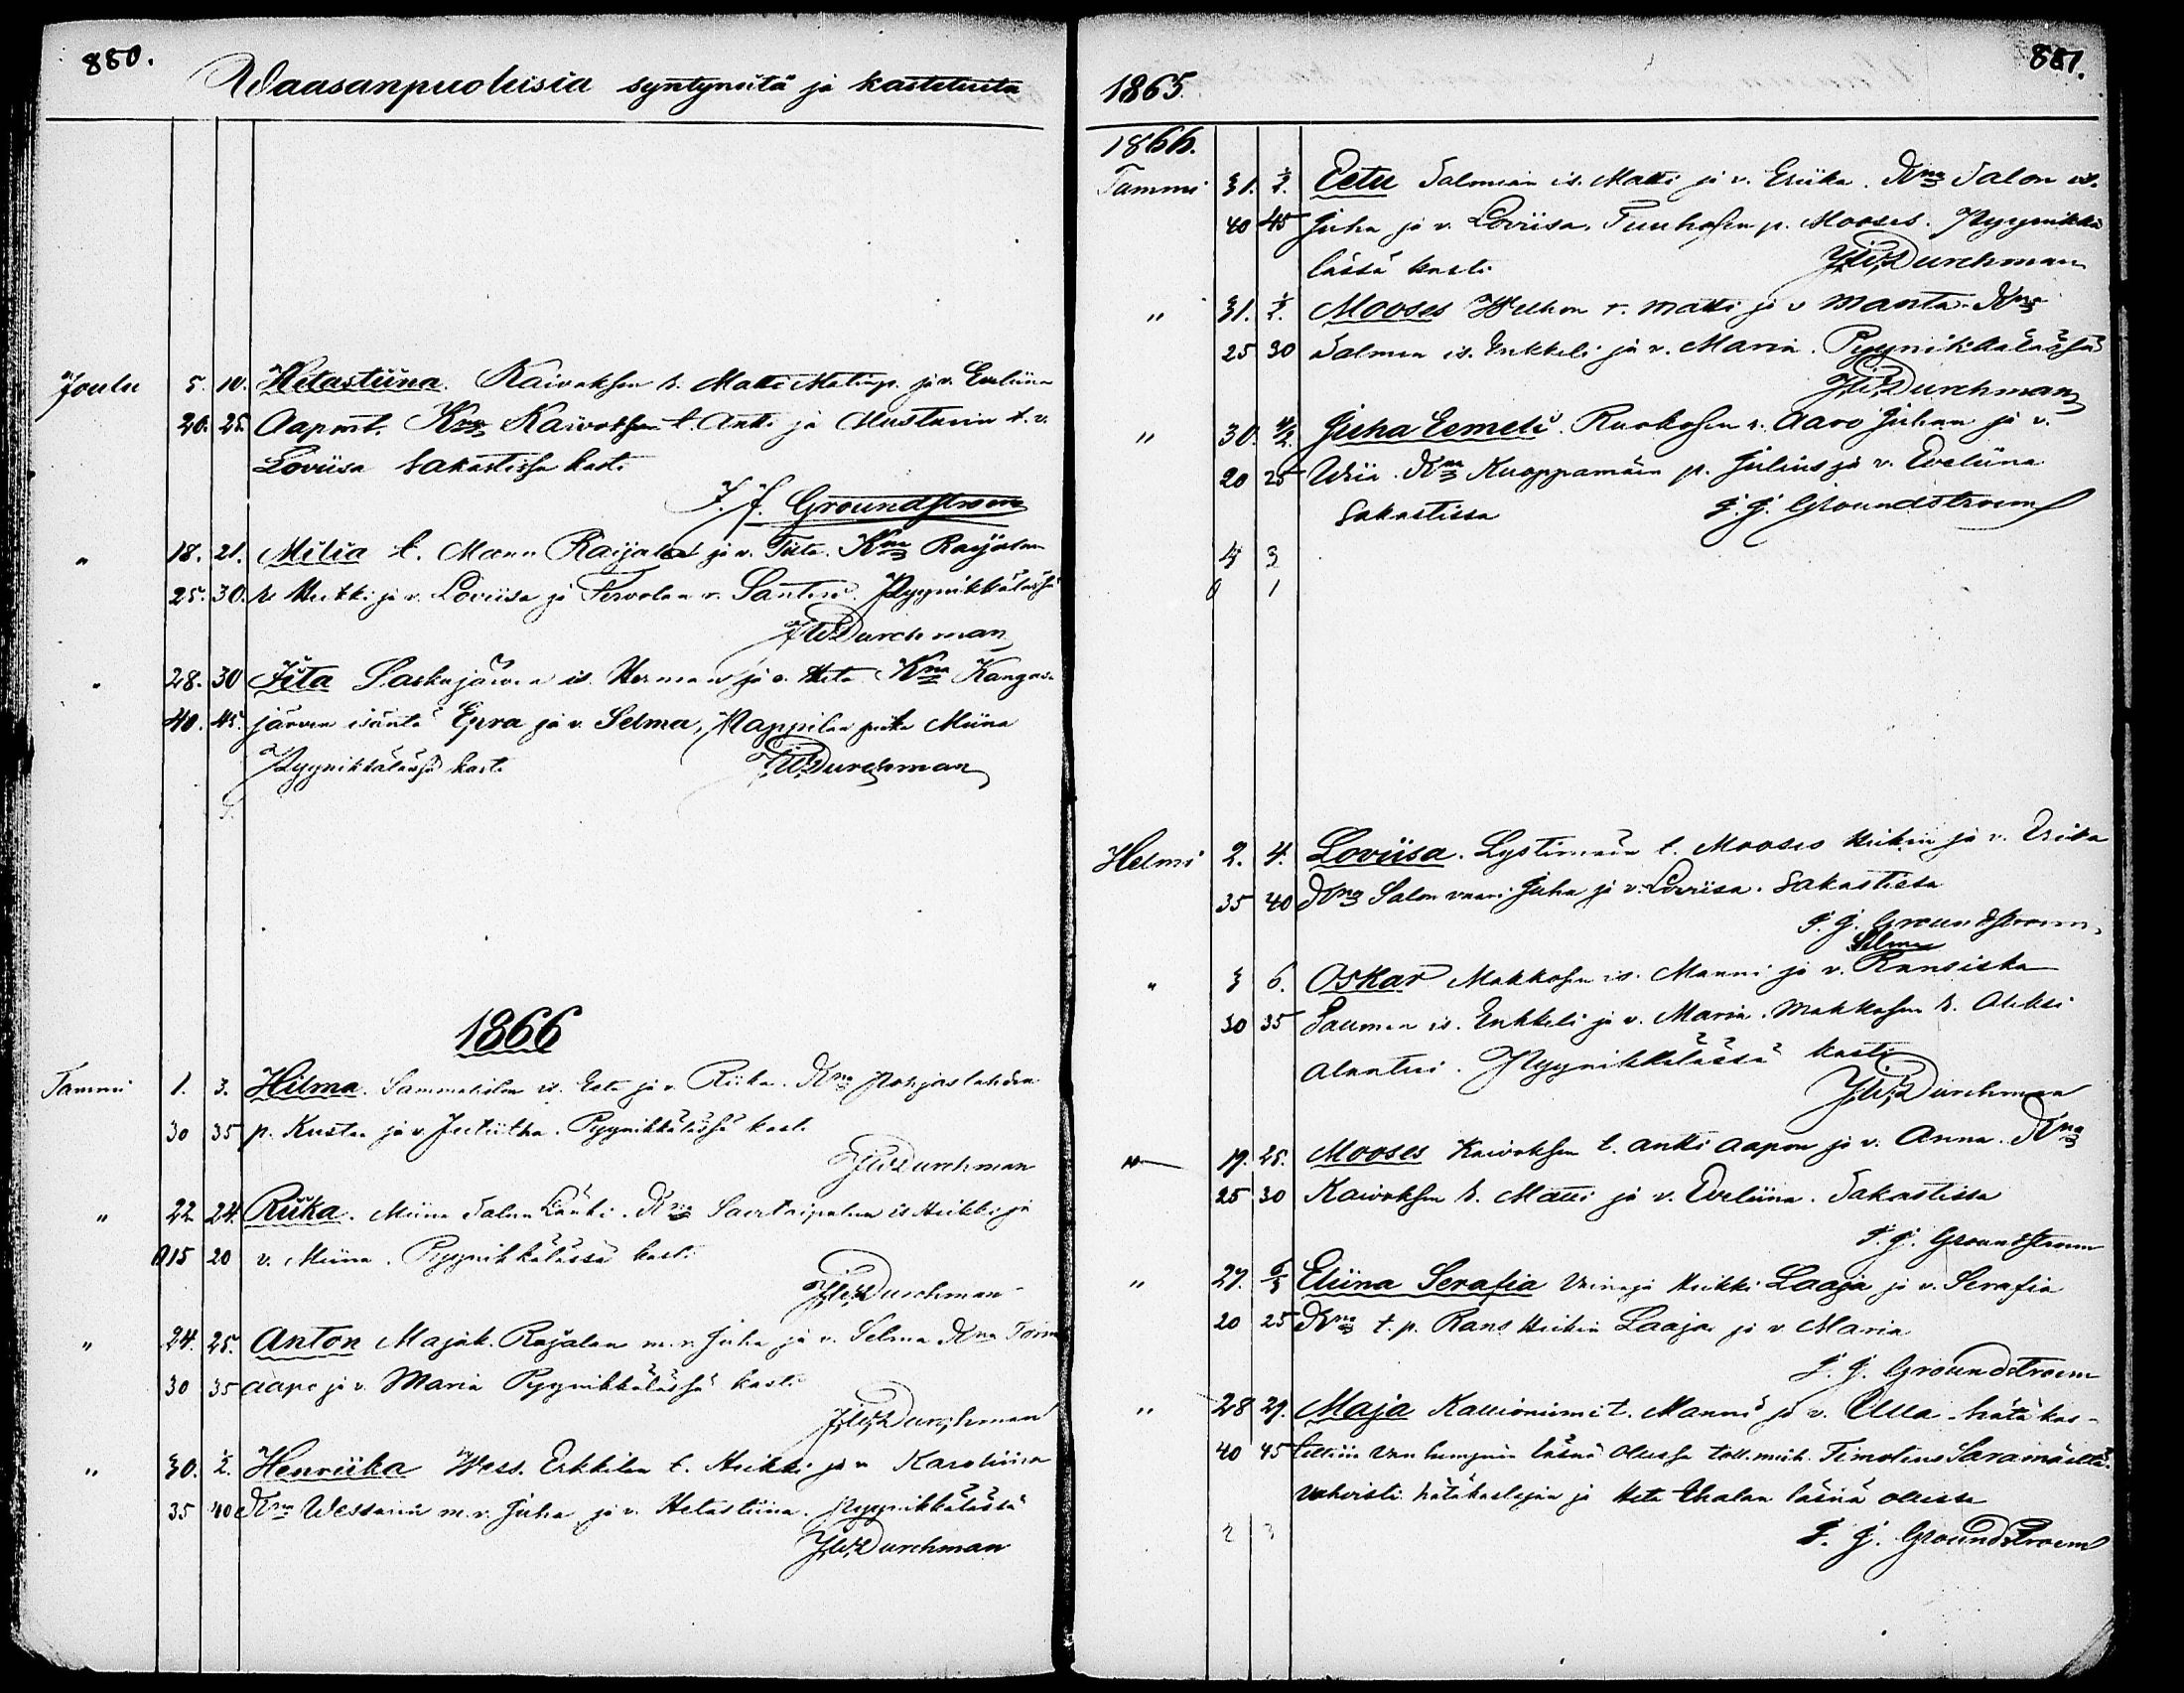 880.
Waasanpuolisia syntyneitä ja kastetuita
Joulu 5. 10. Hetastiina. Kaivoksen r. Matti Matinp. ja v. Eveliina
20. 25. Aapont. Kmz Kaivoksen t. Antti ja Mustarin t. v.
Loviisa Sakastissa kasti
J. J. Groundstroem
" 18. 21. Milia t. Mann Raijalat ja v. Tilta. Kmz Raijalan
25. 30. r. Heikki ja v. Loviisa ja Tervolan r. Santeri. Pyynikkälässä
J W Durchman
" 28. 30 Iita Saskujärven is. Herman ja v. Heta Kmz Kangas-
40. 45. järven isäntä Epra ja v. Selma, Pappilan piika Miina
Pyynikkälässä kasti J W Durchman
1866
Tammi 1. 3. Hilma. Sammaliston is. Eetu ja v. Riika. Kmz Pohjaslahden
30 35 p. Kustaa ja v. Juliitha. Pyynikkälässä kasti
J W Durchman
" 22 24. Riika. Miina Salon Länki. Kmz Saartaipaleen is Heikki ja
15 20 v. Miina. Pyynikkälässä kasti
J W Durchman
" 24. 25. Anton Majak. Rajalan m. v. Juha ja v. Selma Kmz
30 35 Aape ja v. Maria Pyynikkälässä kasti
J W Durchman
" 30. 1/2. Henriika Wess. Erkkilän t. Heikki ja v. Karoliina
35 40 Kmz Wessarin m. v. Juha ja v. Hetastiina. Pyynikkälässä
J W Durchman
881.
1865.
1866.
Tammi 31. 1/2. Eetu Salmian is. Matti ja v. Eriika. Kmz Salon
40 45 Juha ja v. Loviisa. Tuuhosen p. Mooses. Pyynikkä
lässä kasti J W Durchman
" 31. 1/2. Mooses Welhon r. Matti ja v Manta. Kmz
25 30 Salmen is. Enkkeli ja v. Maria. Pyynikkälässä
J W Durchman
" 30. 4/2. Juha Eemeli. Ruokosen r. Aaro Juhan ja v.
20 25 Wiia. Kmz Kuoppamäen p. Julius ja v. Eveliina
Sakastissa J. J. Groundstroem
4 3
0 1
Helmi 2. 4. Loviisa. Lystimäen t. Mooses Heikin ja v. Eriika
35 40 Kmz Salon vaari Juha ja v. Loviisa. Sakastissa
J. J. Groundstroem
Selma
" 3 6. Oskar Makkosen is. Manni ja v. Ransiska
30 35 Saumen is. Enkkeli ja v. Maria. Makkosen r. Aleksi
Alanteri. Pyynikkälässä kasti
J W Durchman
" 19. 25. Mooses Kaivoksen t. Antti Aapon ja v. Anna. Kmz
25 30 Kaivoksen r. Matti ja v. Eveliina. Sakastissa
J. J. Groundstroem
" 27. 6/3 Eliina Serafia Heikki Laaja ja v. Serafia
20 25 Kmz t. p. Rans Heikin Laaja ja v Maria
J. J. Groundstroem
" 28 29. Maja Kallioniemi t. Manni ja v. Ulla. hätä kas-
40 45 läsnä ollessa Timoteus Saramäeltä.
vahvisti hätäkasteen ja Heta Ehalan läsnä ollessa
2 3 J. J. Groundstroem